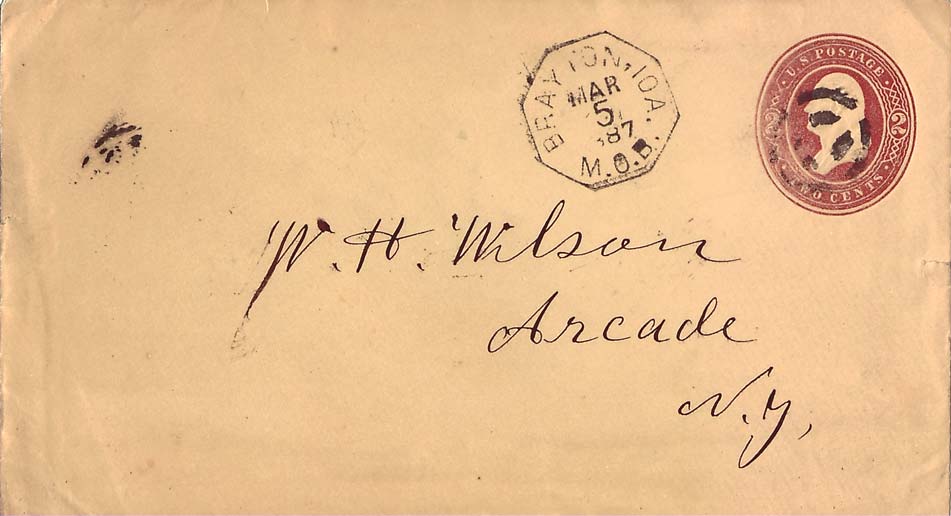 BRAYTON, IOA.
MAR
5
1887
M.O.B.
U.S. POSTAGE
2 2
TWO CENTS
W. H. Wilson
Arcade
N.Y,